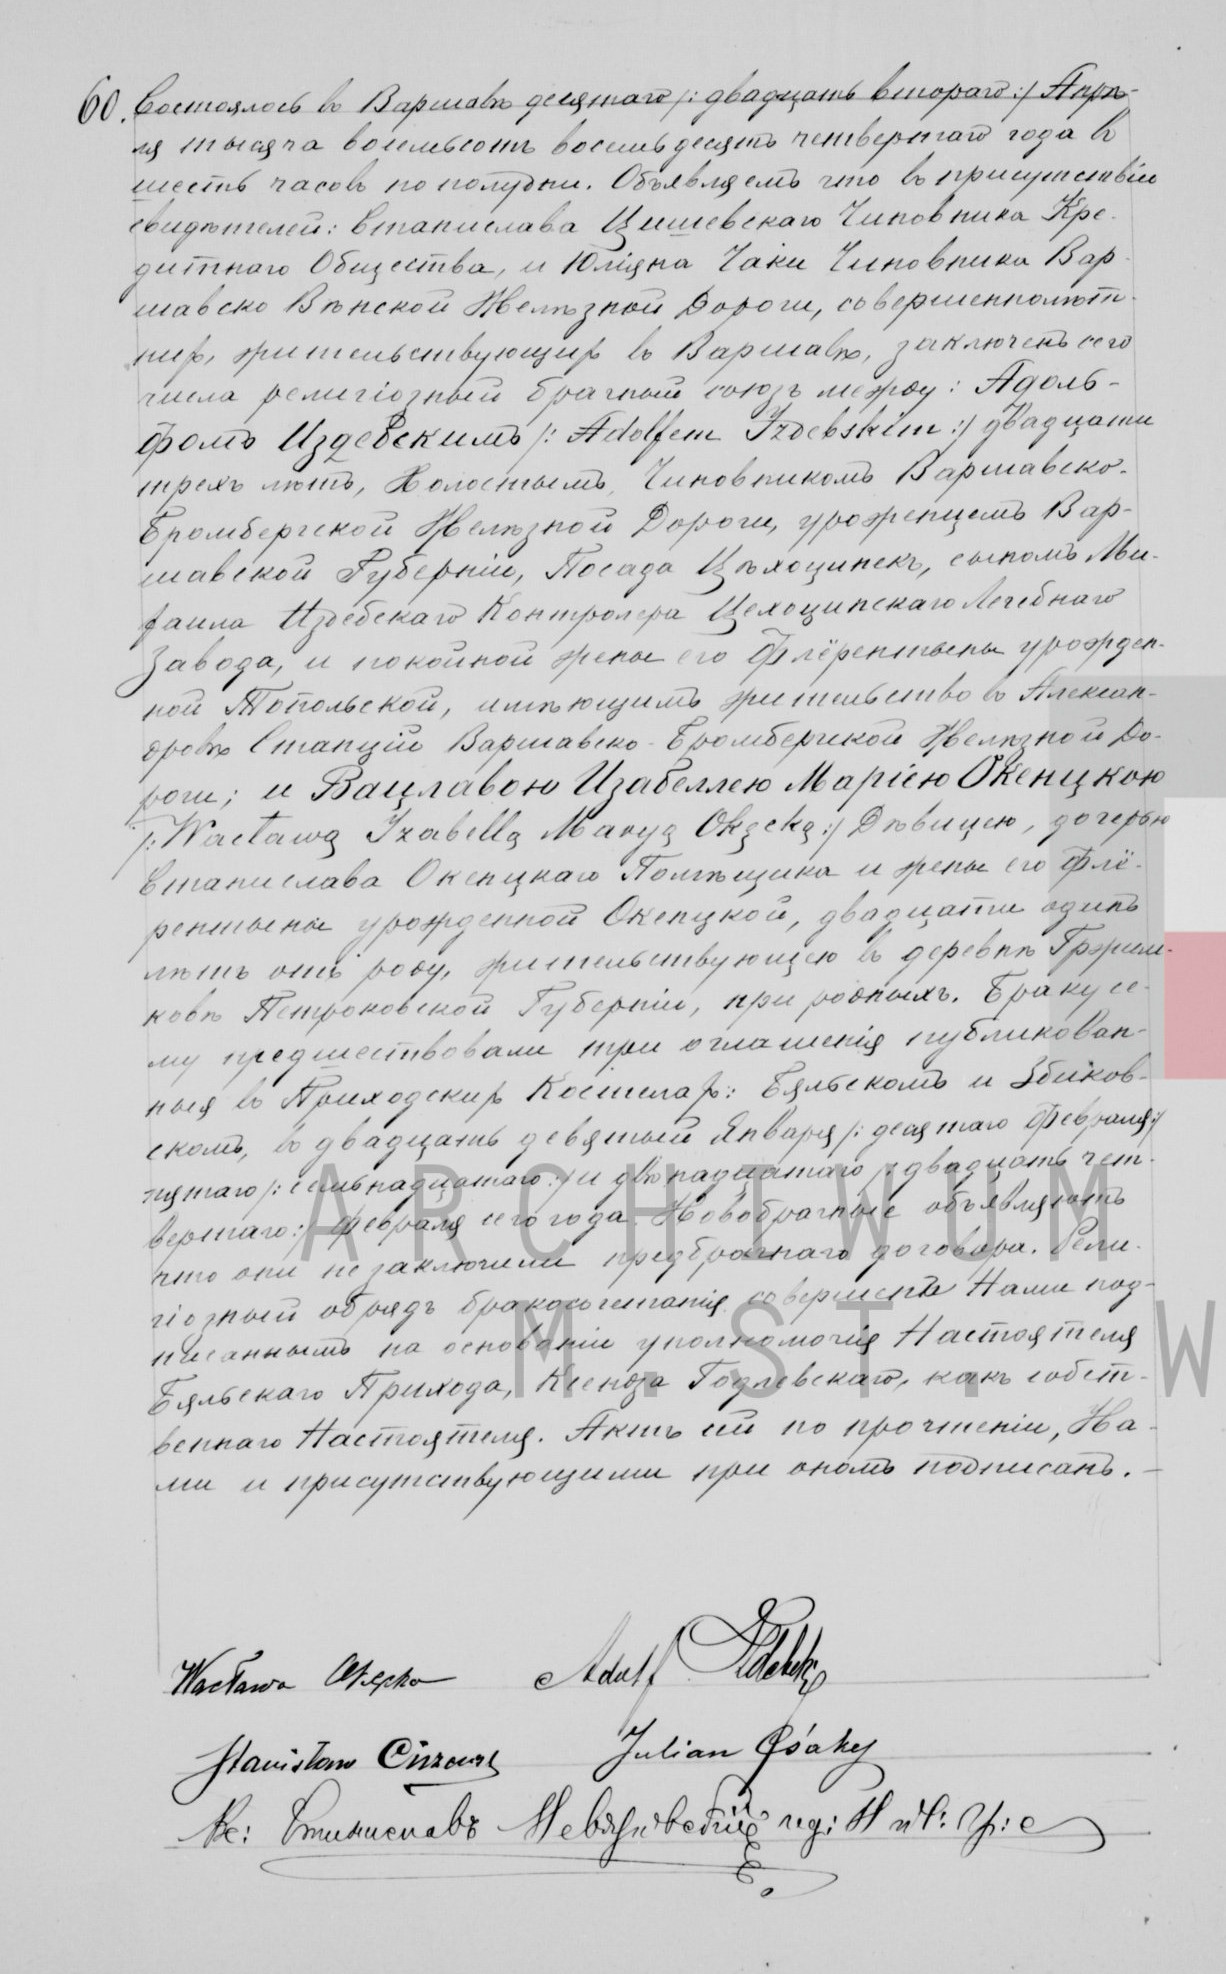 60. Состоялось въ Варшавѣ десятаго /: двадцать втораго :/ Апрѣ-
ля тысяча восемьсотъ восемьдесятъ четвертаго года въ
шесть часовъ пополудни. Объявляемъ что въ присутствіи
свидѣтелей: Станислава Цишевскаго Чиновника Кре-
дитнаго Общества, и Юліяна Чаки Чиновника Вар-
шавско Вѣнской Желѣзной Дороги, совершеннолѣт-
нихъ, жительствующихъ въ Варшавѣ, заключенъ сего
числа религіозный брачный союзъ между: Адоль-
фомъ Издебскимъ /: Adolfem Izdebskim :/ двадцати
трехъ лѣтъ, Холостымъ, Чиновникомъ Варшавско-
Бромбергской Желѣзной Дороги, уроженцемъ Вар-
шавской Губерніи, Посада Цѣхоцинекъ, сыномъ Ми-
хаила Издебскаго Контролера Цехоцинскаго Лечебнаго
Завода, и покойной жены его Флёрентыны урожден-
ной Топольской, имѣющимъ жительство въ Алексан-
дровѣ Станціи Варшавско-Бромбергской Желѣзной До-
роги; и Вацлавою Изабеллею Маріею Окенцкою
/: Wacławą Izabellą Maryą Okęcką :/ Дѣвицею, дочерью
Станислава Окенцкаго Помѣщика и жены его Флё-
рентыны урожденной Окенцкой, двадцати одинъ
лѣтъ отъ роду, жительствующею въ деревнѣ Гржим-
ковѣ Петроковской Губерніи, при родныхъ. Браку се-
му предшествовали три оглашенія публикован-
ныя въ Приходскихъ Костелахъ: Бяльскомъ и Збиков-
скомъ, въ двадцать девятый Января /: десятаго Февраля :/
пятаго /: семьнадцатаго :/ и двѣнадцатаго /: двадцать чет-
вертаго :/ Февраля сего года. Новобрачные объявляютъ
что они незаключили предбрачнаго договора. Рели-
гіозный обрядъ бракосочетанія совершенъ Нами под-
писаннымъ на основаніи уполномочія Настоятеля
Бяльскаго Прихода, Ксендза Годлевскаго, какъ собст-
веннаго Настоятеля. Актъ сій по прочтеніи, На-
ми и присутствующими при ономъ подписанъ. —
Wacława Okęcka Adolf Izdebski
Stanisław Julian Csáky
Кс: Станиславъ
ARCHIWUM
M. ST. W